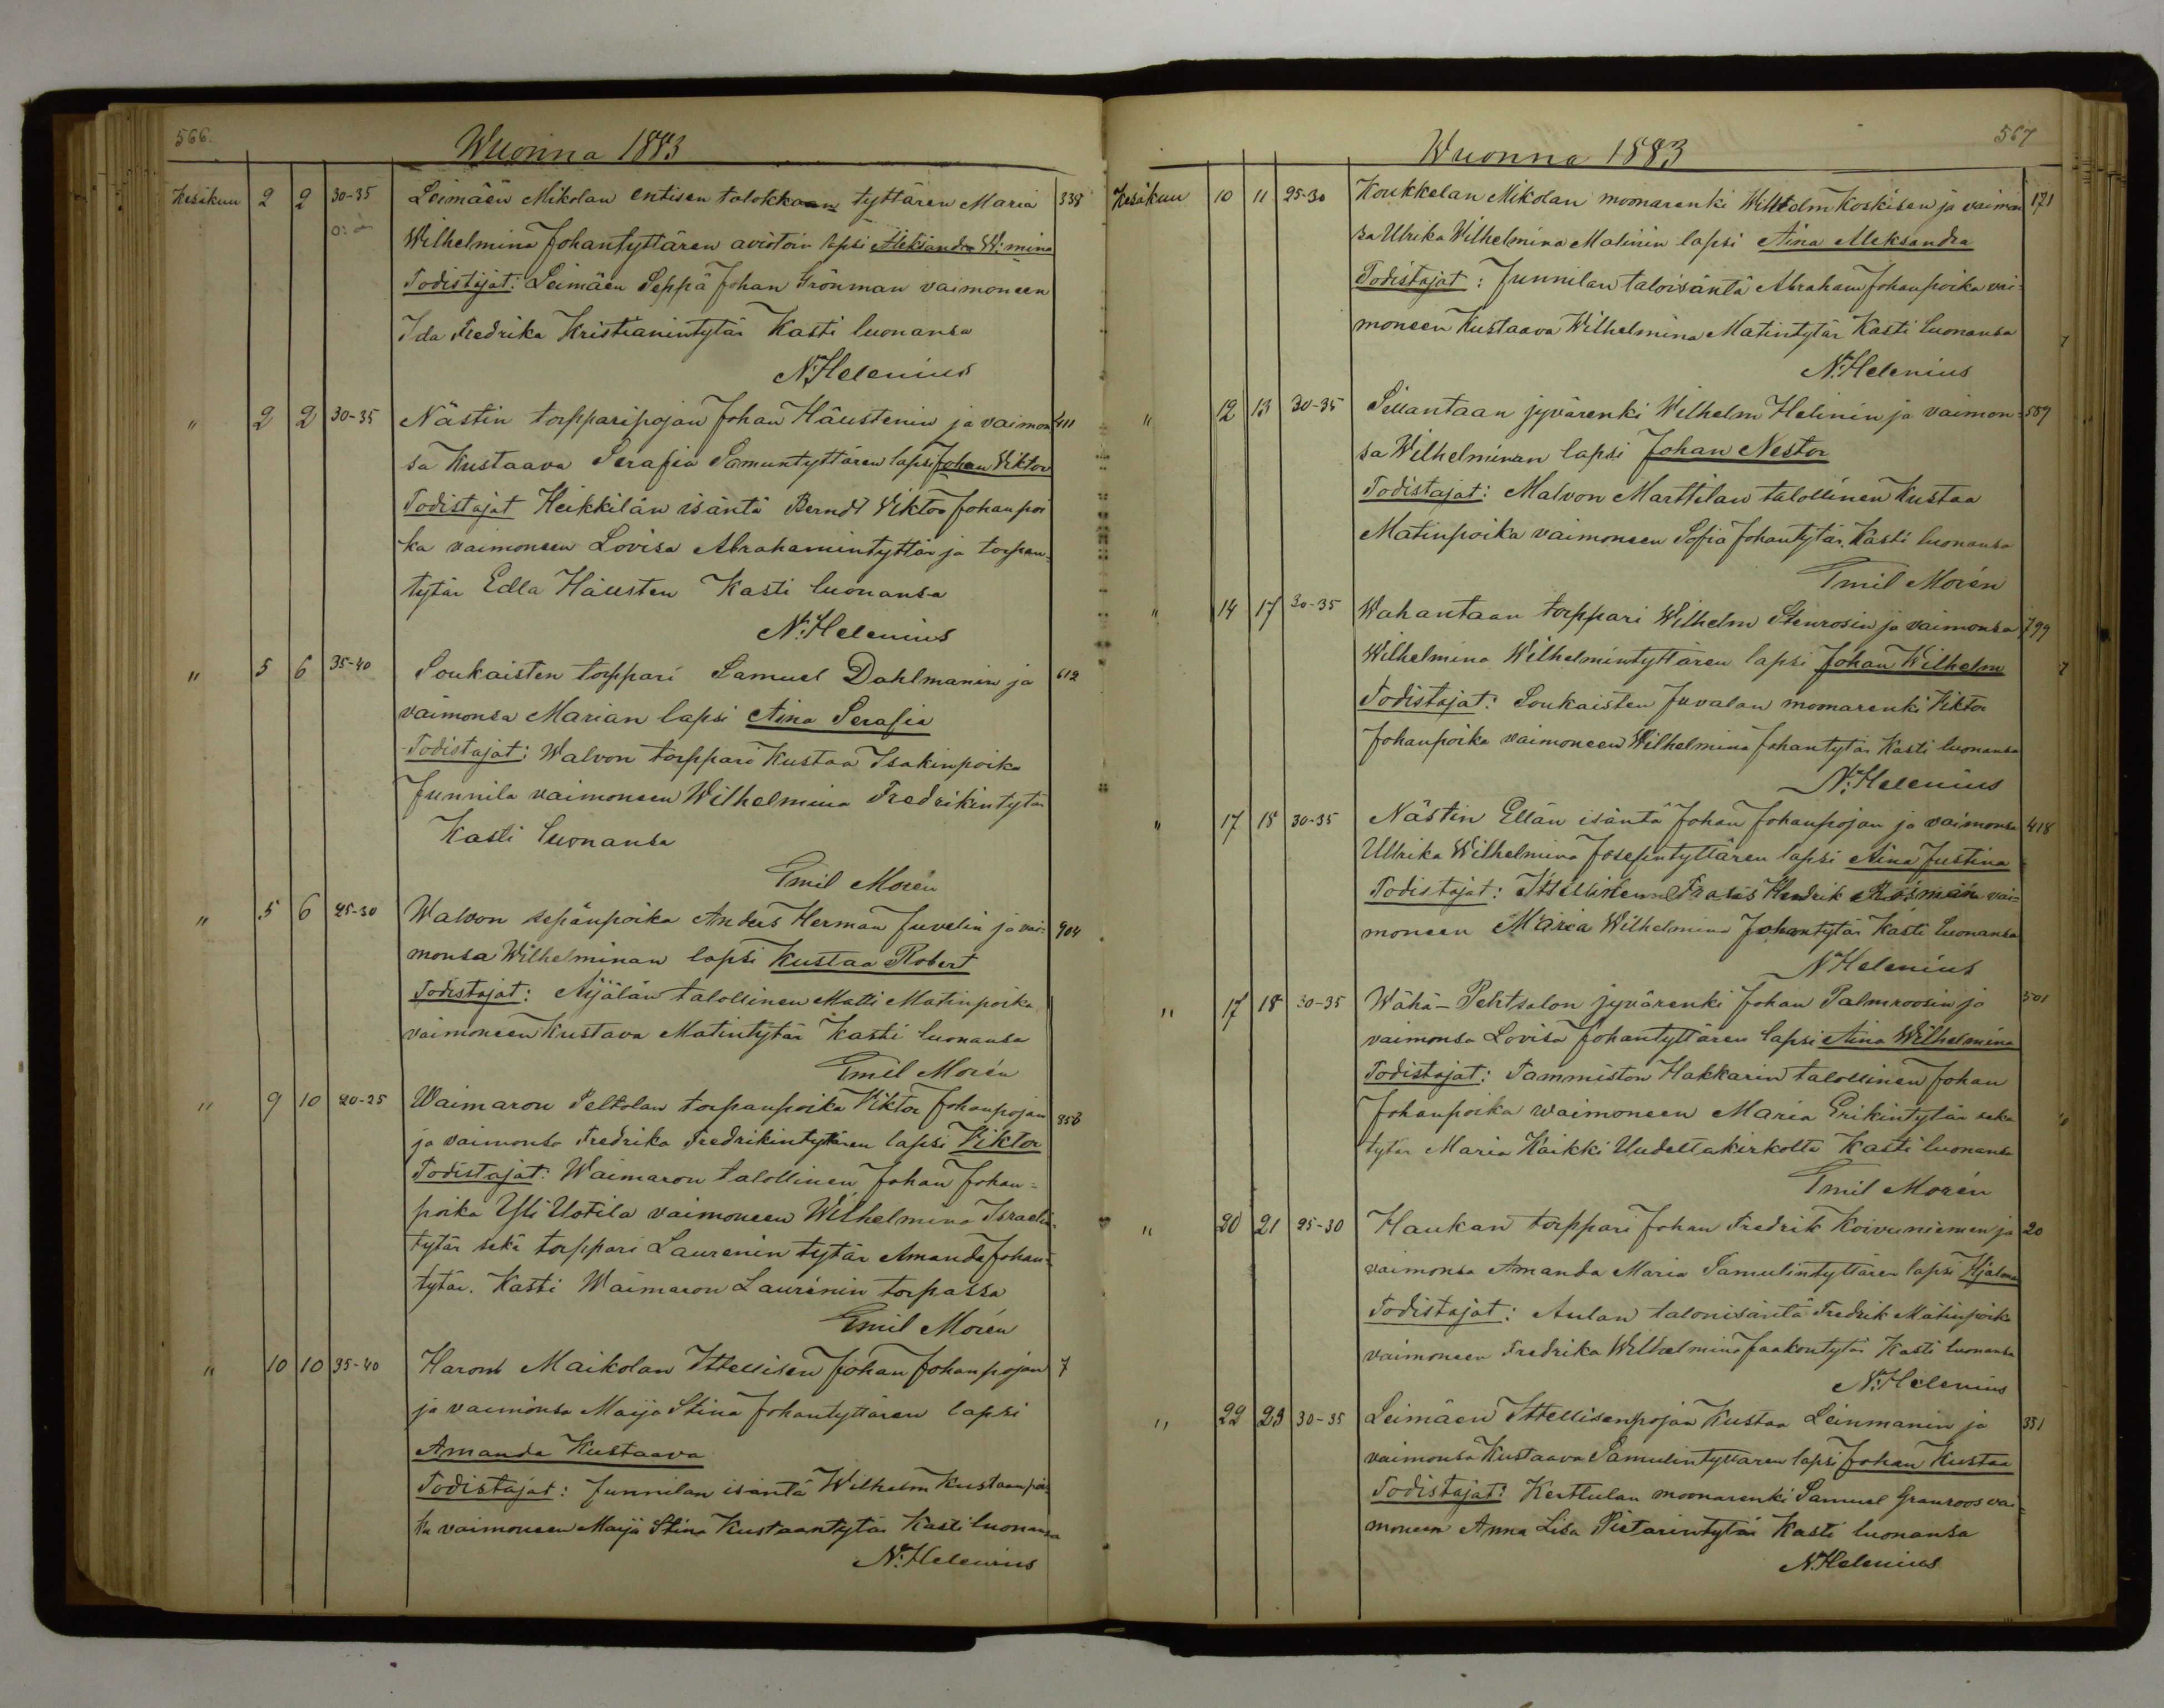 566.
Wuonna 1883
Kesäkuu 2 2 30-35 Leimäen Mikolan entisen talokkaan tyttären Maria 338
Wilhelmina Johantyttären avioton lapsi Aleksandra W:mina
Todistajat: Leimäen Seppä Johan Grönman vaimoneen
Ida Fredrika Kristianintytär Kasti luonansa
N. Helenius
" 2 2 30-35 Nästin torpparipojan Johan Häustenin ja vaimon 411
sa Kustaava Serafia Samuntyttären lapsi Johan Viktor
Todistajat Heikkilän isäntä Berndt Viktor Johanpoi
ka vaimoneen Lovisa Abrahamintyttär ja torpan-
tytär Edla Häusten Kasti luonansa
N. Helenius
" 5 6 35-40 Soukaisten torppari Samuel Dahlmanin ja 612
vaimonsa Marian lapsi Aina Serafia
Todistajat: Walvon torppari Kustaa Isakinpoika
Junnila vaimoneen Wilhelmina Fredrikintytär
Kasti luonansa
Emil Morén
" 5 6 25-30 Walvon sepänpoika Anders Herman Juvelin ja vai- 904
monsa Wilhelminan lapsi Kustaa Robert
Todistajat: Äijälän talollinen Matti Matinpoika
vaimoneen Kustava Matintytär Kasti luonansa
Emil Morén
" 9 10 20-25 Waimaron Peltolan torpanpoika Viktor Johanpojan 856
ja vaimonsa Fredrika Fredrikintyttären lapsi Viktor
Todistajat: Waimaron talollinen Johan Johan-
poika Yli Uotila vaimoneen Wilhelmina Israelin-
tytär sekä torppari Laurenin tytär Amanda Johan-
tytär. Kasti Waimaron Laurénin torpassa
Emil Morén
" 10 10 35-40 Maikolan Ittellisen Johan Johanpojan 7
ja vaimonsa Maija Stina Johantyttären lapsi
Amanda Kustaava
Todistajat: Junnilan isäntä Wilhelm Kustaanpoi-
ka vaimoneen Maija Stina Kustaantytär Kasti luonansa
N. Helenius
567
Wuonna 1883
Kesäkuu 10 11 25-30 Koukkelan Mikolan moonarenki Wilhelm Koskisen ja vaimon 121
sa Ulrika Wilhelmina Matinin lapsi Aina Aleksandra
Todistajat: Junnilan taloisäntä Abraham Johanpoika vai-
moneen Kustaava Wilhelmina Matintytär Kasti luonansa
N. Helenius
" 12 13 30-35 jyvärenki Wilhelm Helinin ja vaimon- 589
sa Wilhelminan lapsi Johan Nestor
Todistajat: Malvon Marttilan talollinen Kustaa
Matinpoika vaimoneen Sofia Johantytär. Kasti luonansa
Emil Morén
" 14 17 30-35 Wahantaan torppari Wilhelm Stenrosin ja vaimonsa 799
Wilhelmina Wilhelmintyttären lapsi Johan Wilhelm
Todistajat: Soukaisten Juvalan moonarenki Viktor
Johanpoika vaimoneen Wilhelmina Johantytär Kasti luonansa
N. Helenius
" 17 18 30-35 Nästin Ellän isäntä Johan Johanpojan ja vaimonsa 418
Ullrika Wilhelmina Josepintyttären lapsi Aina Justina
Todistajat: Hendrik vai-
moneen Maria Wilhelmina Johantytär Kasti luonansa
N Helenius
" 17 18 30-35 Wähä-Pehtsalon jyvärenki Johan Palmroosin ja 501
vaimonsa Lovisa Johantyttären lapsi Aina Wilhelmina
Todistajat: Tammiston Hakkarin talollinen Johan
Johanpoika waimoneen Maria Erikintytär sekä
tytär Maria Kaikki Uudeltakirkolta Kasti luonansa
Emil Morén
" 20 21 25-30 Haukan torppari Johan Fredrik Koivuniemen ja 20
vaimonsa Amanda Maria Samulintyttären lapsi Hjalmar
Todistajat: Aulan talonisäntä Fredrik Matinpoika
vaimoneen Fredrika Wilhelmina Jaakontytär Kasti luonansa
N. Helenius
" 22 23 30-35 Leimäen Ittellisenpojan Kustaa Leinmanin ja 351
vaimonsa Kustaava Samulintyttären lapsi Johan Kustaa
Todistajat: Kerttulan moonarenki Samuel Granroos vai-
moneen Anna Lisa Pietarintytär Kasti luonansa
N. Helenius